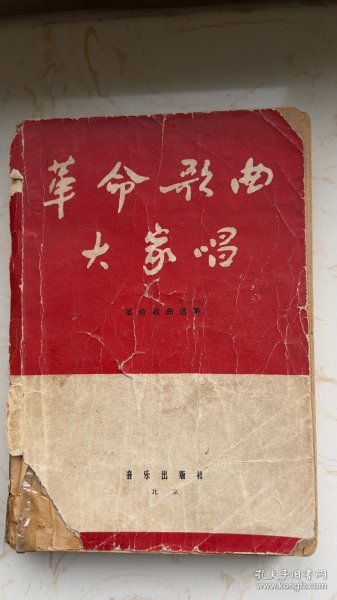 革命歌曲
大家唱
革命歌曲选集
音乐出版社
北京
孔夫子旧书网